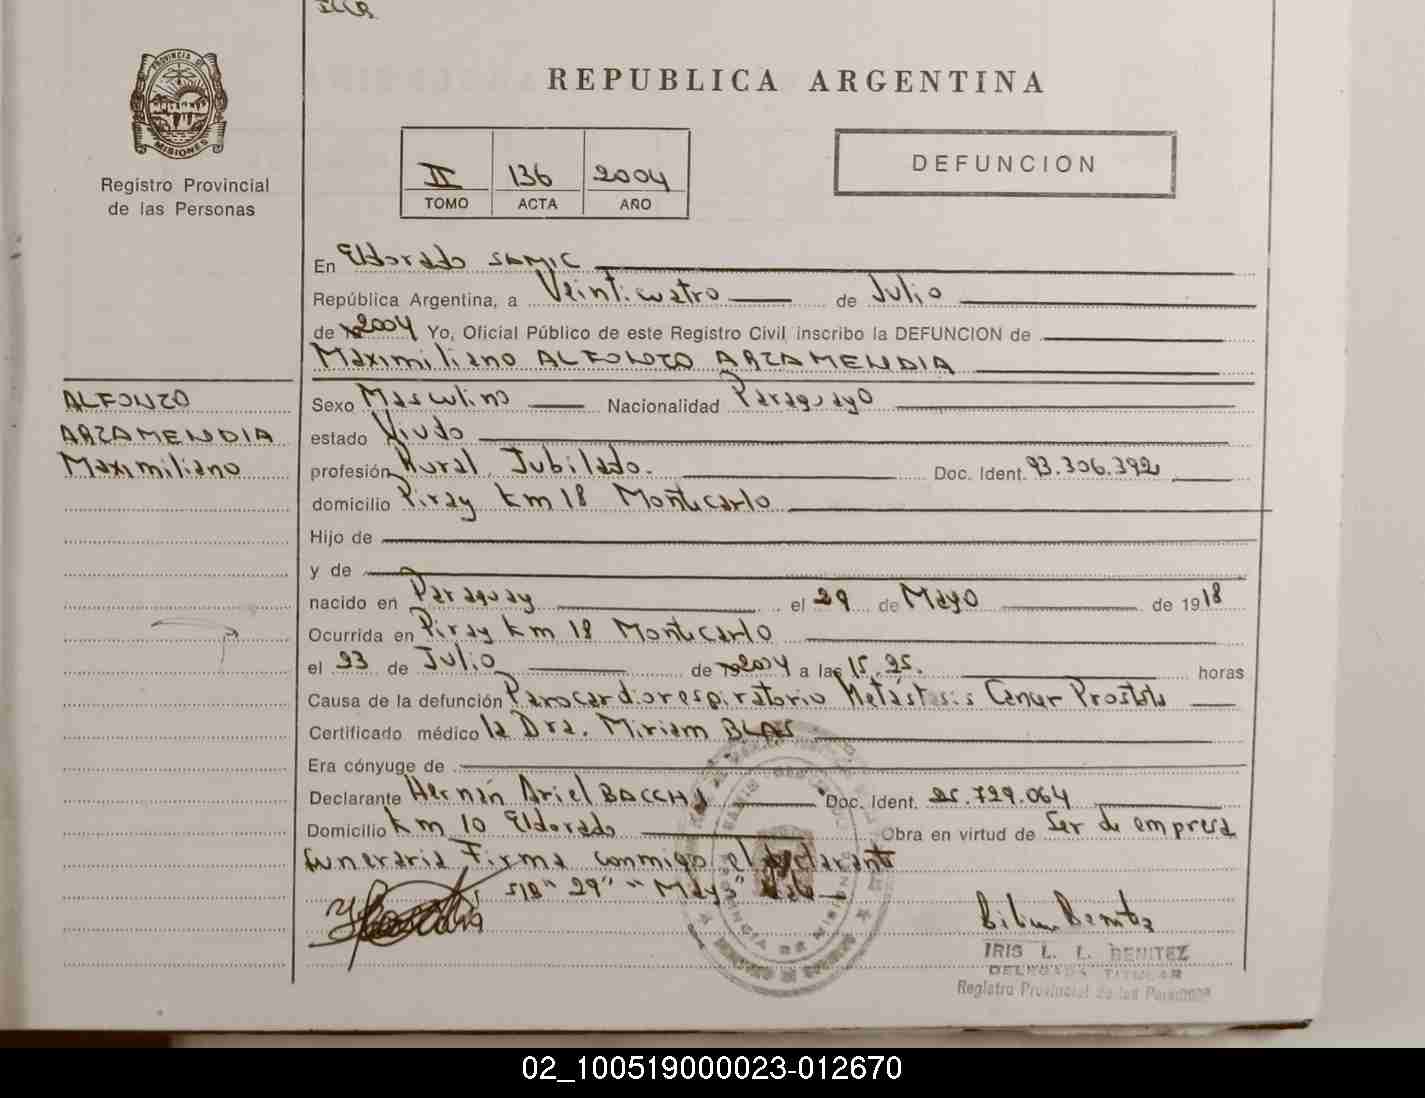 PROVINCIA DE
MISIONES
Registro Provincial
de las Personas
REPUBLICA ARGENTINA
II 136 2004
TOMO ACTA AÑO
DEFUNCION
En Eldorado SAMIC
República Argentina, a Veinticuatro de Julio
de 2004 Yo, Oficial Público de este Registro Civil inscribo la DEFUNCION de
Maximiliano ALFONZO ARZAMENDIA
ALFONZO
ARZAMENDIA
Maximiliano
Sexo Masculino Nacionalidad Paraguayo
estado Viudo
profesión Rural Jubilado. Doc. Ident. 93.306.392
domicilio Piray Km 18 Montecarlo
Hijo de
y de
nacido en Paraguay el 29 de Mayo de 1918
Ocurrida en Piray Km 18 Montecarlo
el 23 de Julio de 2004 a las 15,25. horas
Causa de la defunción Parocardiorespiratorio Metástasis Cancer Prostata
Certificado médico la Dra. Miriam BLAS
Era cónyuge de
Declarante Hernán Ariel BACCHI Doc. Ident. 25.729.064
Domicilio Km 10 Eldorado Obra en virtud de Ser de empresa
funeraria Firma conmigo el declarante
S/R "29" "Mayo" Vale
IRIS L. L. BENITEZ
DELEGADA TITULAR
Registro Provincial de las Personas
02_100519000023-012670